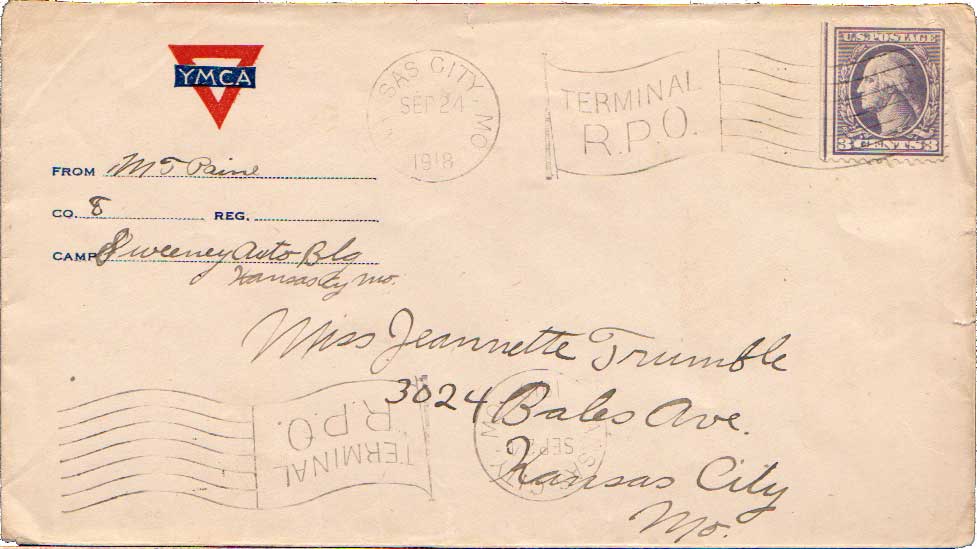 YMCA
KANSAS CITY MO.
SEP 24
1918
TERMINAL
R.P.O.
U.S. POSTAGE
3 CENTS 3
FROM M T Paine
CO. 8 REG.
CAMP Sweeney Auto Blg
Kansas Cy Mo.
Miss Jeannette Trumble
3024 Bales Ave.
Kansas City
Mo.
TERMINAL
R.P.O.
SEP 24